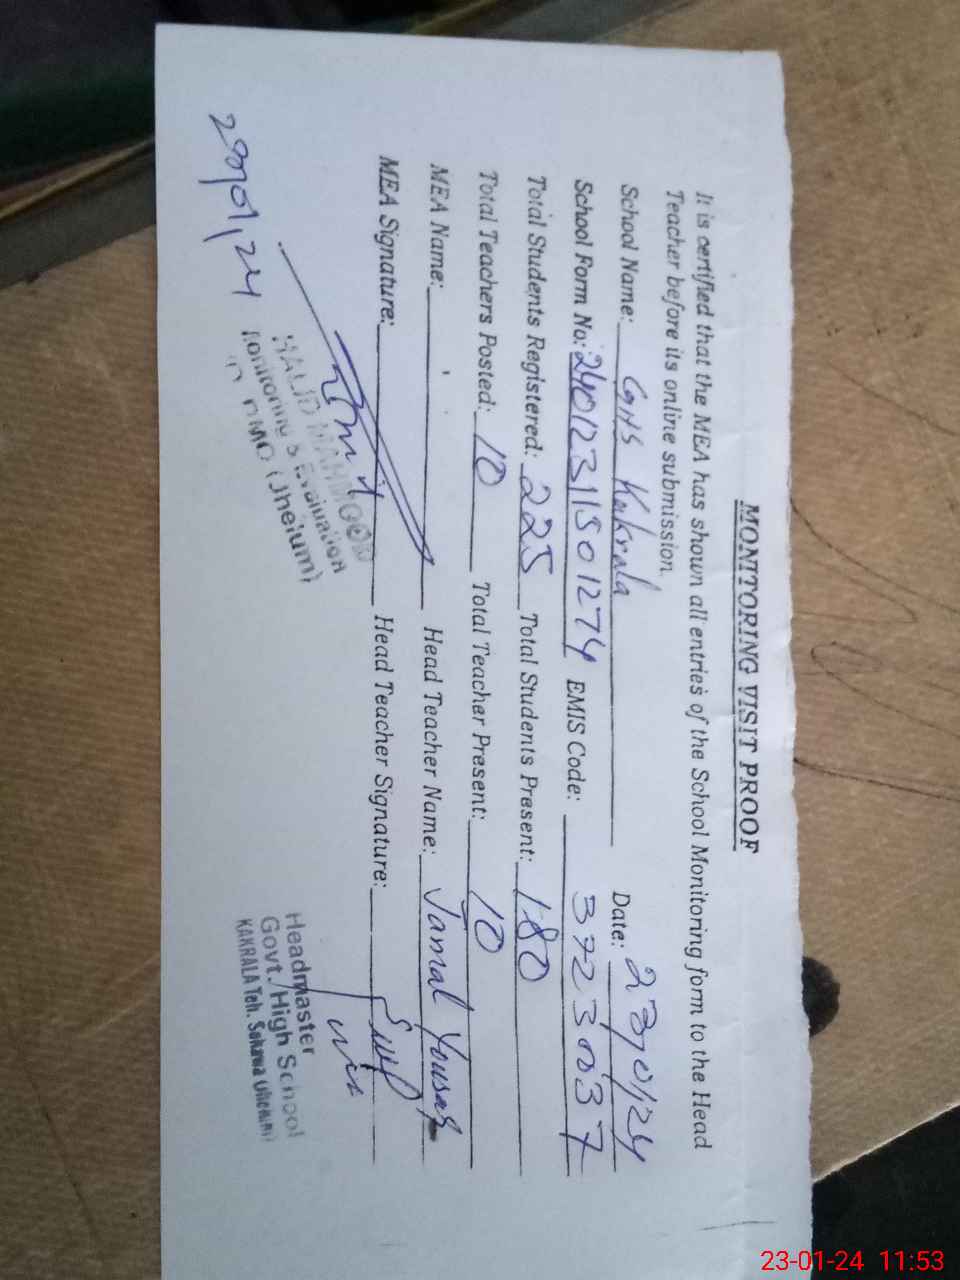 MONITORING VISIT PROOF
It is certified that the MEA has shown all entries of the School Monitoring form to the Head
Teacher before its online submission.
School Name: GHS Kakrala Date: 23/01/24
School Form No: 24012311501274 EMIS Code: 37230037
Total Students Registered: 225 Total Students Present: 180
Total Teachers Posted: 10 Total Teacher Present: 10
MEA Name: Head Teacher Name: Jamal Yousaf
MEA Signature: Head Teacher Signature:
MAHMOOD
Monitoring & Evaluation
(Jhelum)
Headmaster
Govt. High School
KAKRALA Teh. Sohawa
23-01-24 11:53